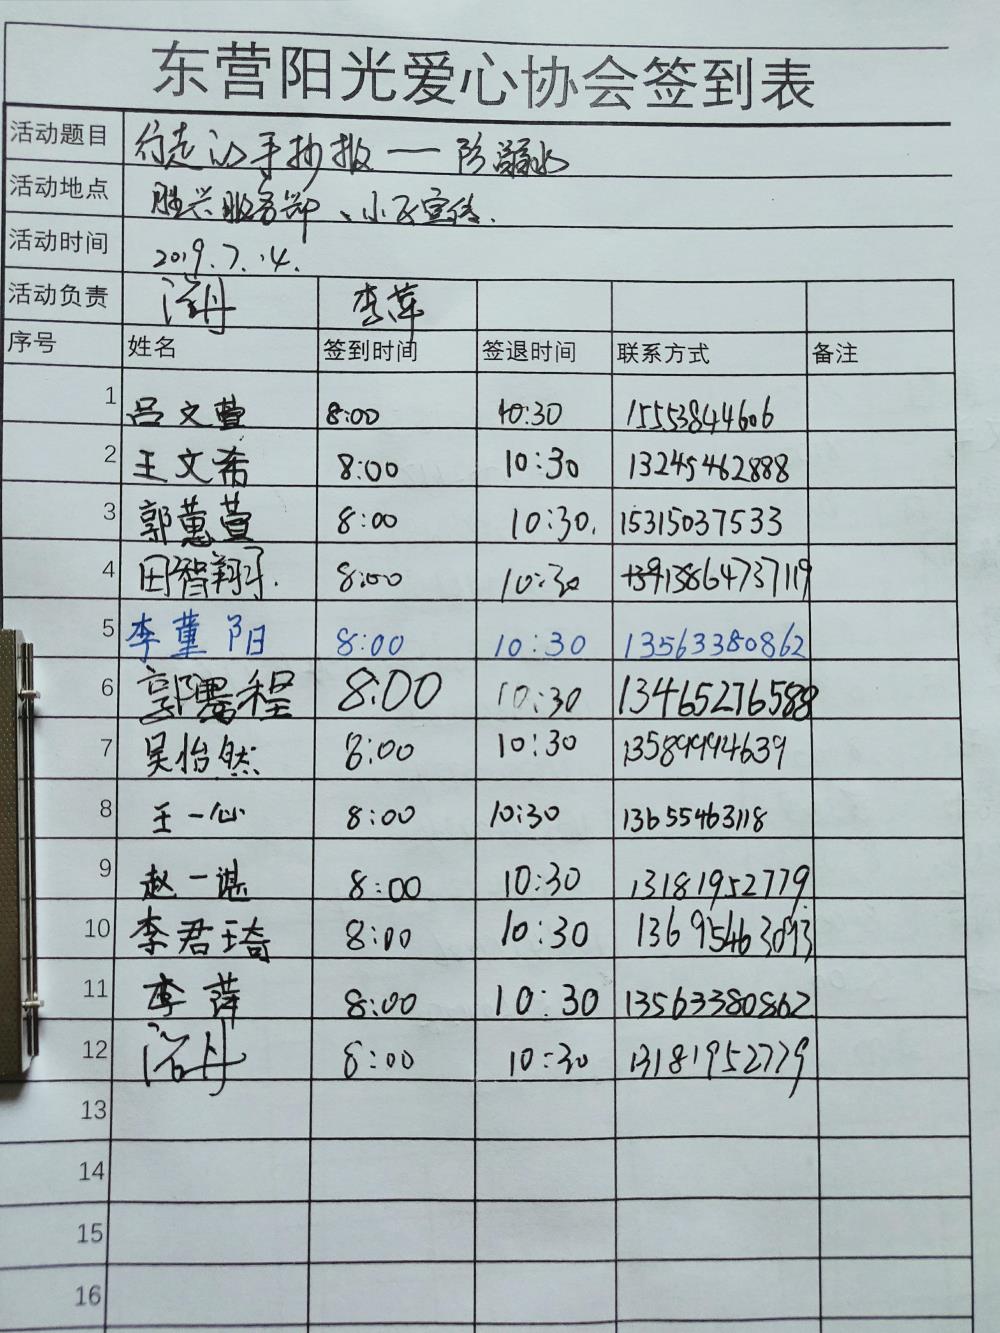 东营阳光爱心协会签到表
活动题目 行走的手抄报——防溺水
活动地点 胜兴服务部、小区宣传.
活动时间 2019.7.14.
活动负责 洁丹 李萍
序号 姓名 签到时间 签退时间 联系方式 备注
1 吕文萱 8:00 10:30 15553844606
2 王文希 8:00 10:30 13245462888
3 郭蕙萱 8:00 10:30. 15315037533
4 田智翔. 8:00 10:30 13864737119
5 李董阳 8:00 10:30 13563380862
6 郭 程 8:00 10:30 13465276588
7 吴怡然 8:00 10:30 13589994639
8 王一心 8:00 10:30 13655463118
9 赵一谌 8:00 10:30 13181952779
10 李君琦 8:00 10:30 13695463093
11 李萍 8:00 10:30 13563380862
12 洁丹 8:00 10:30 13181952779
13
14
15
16